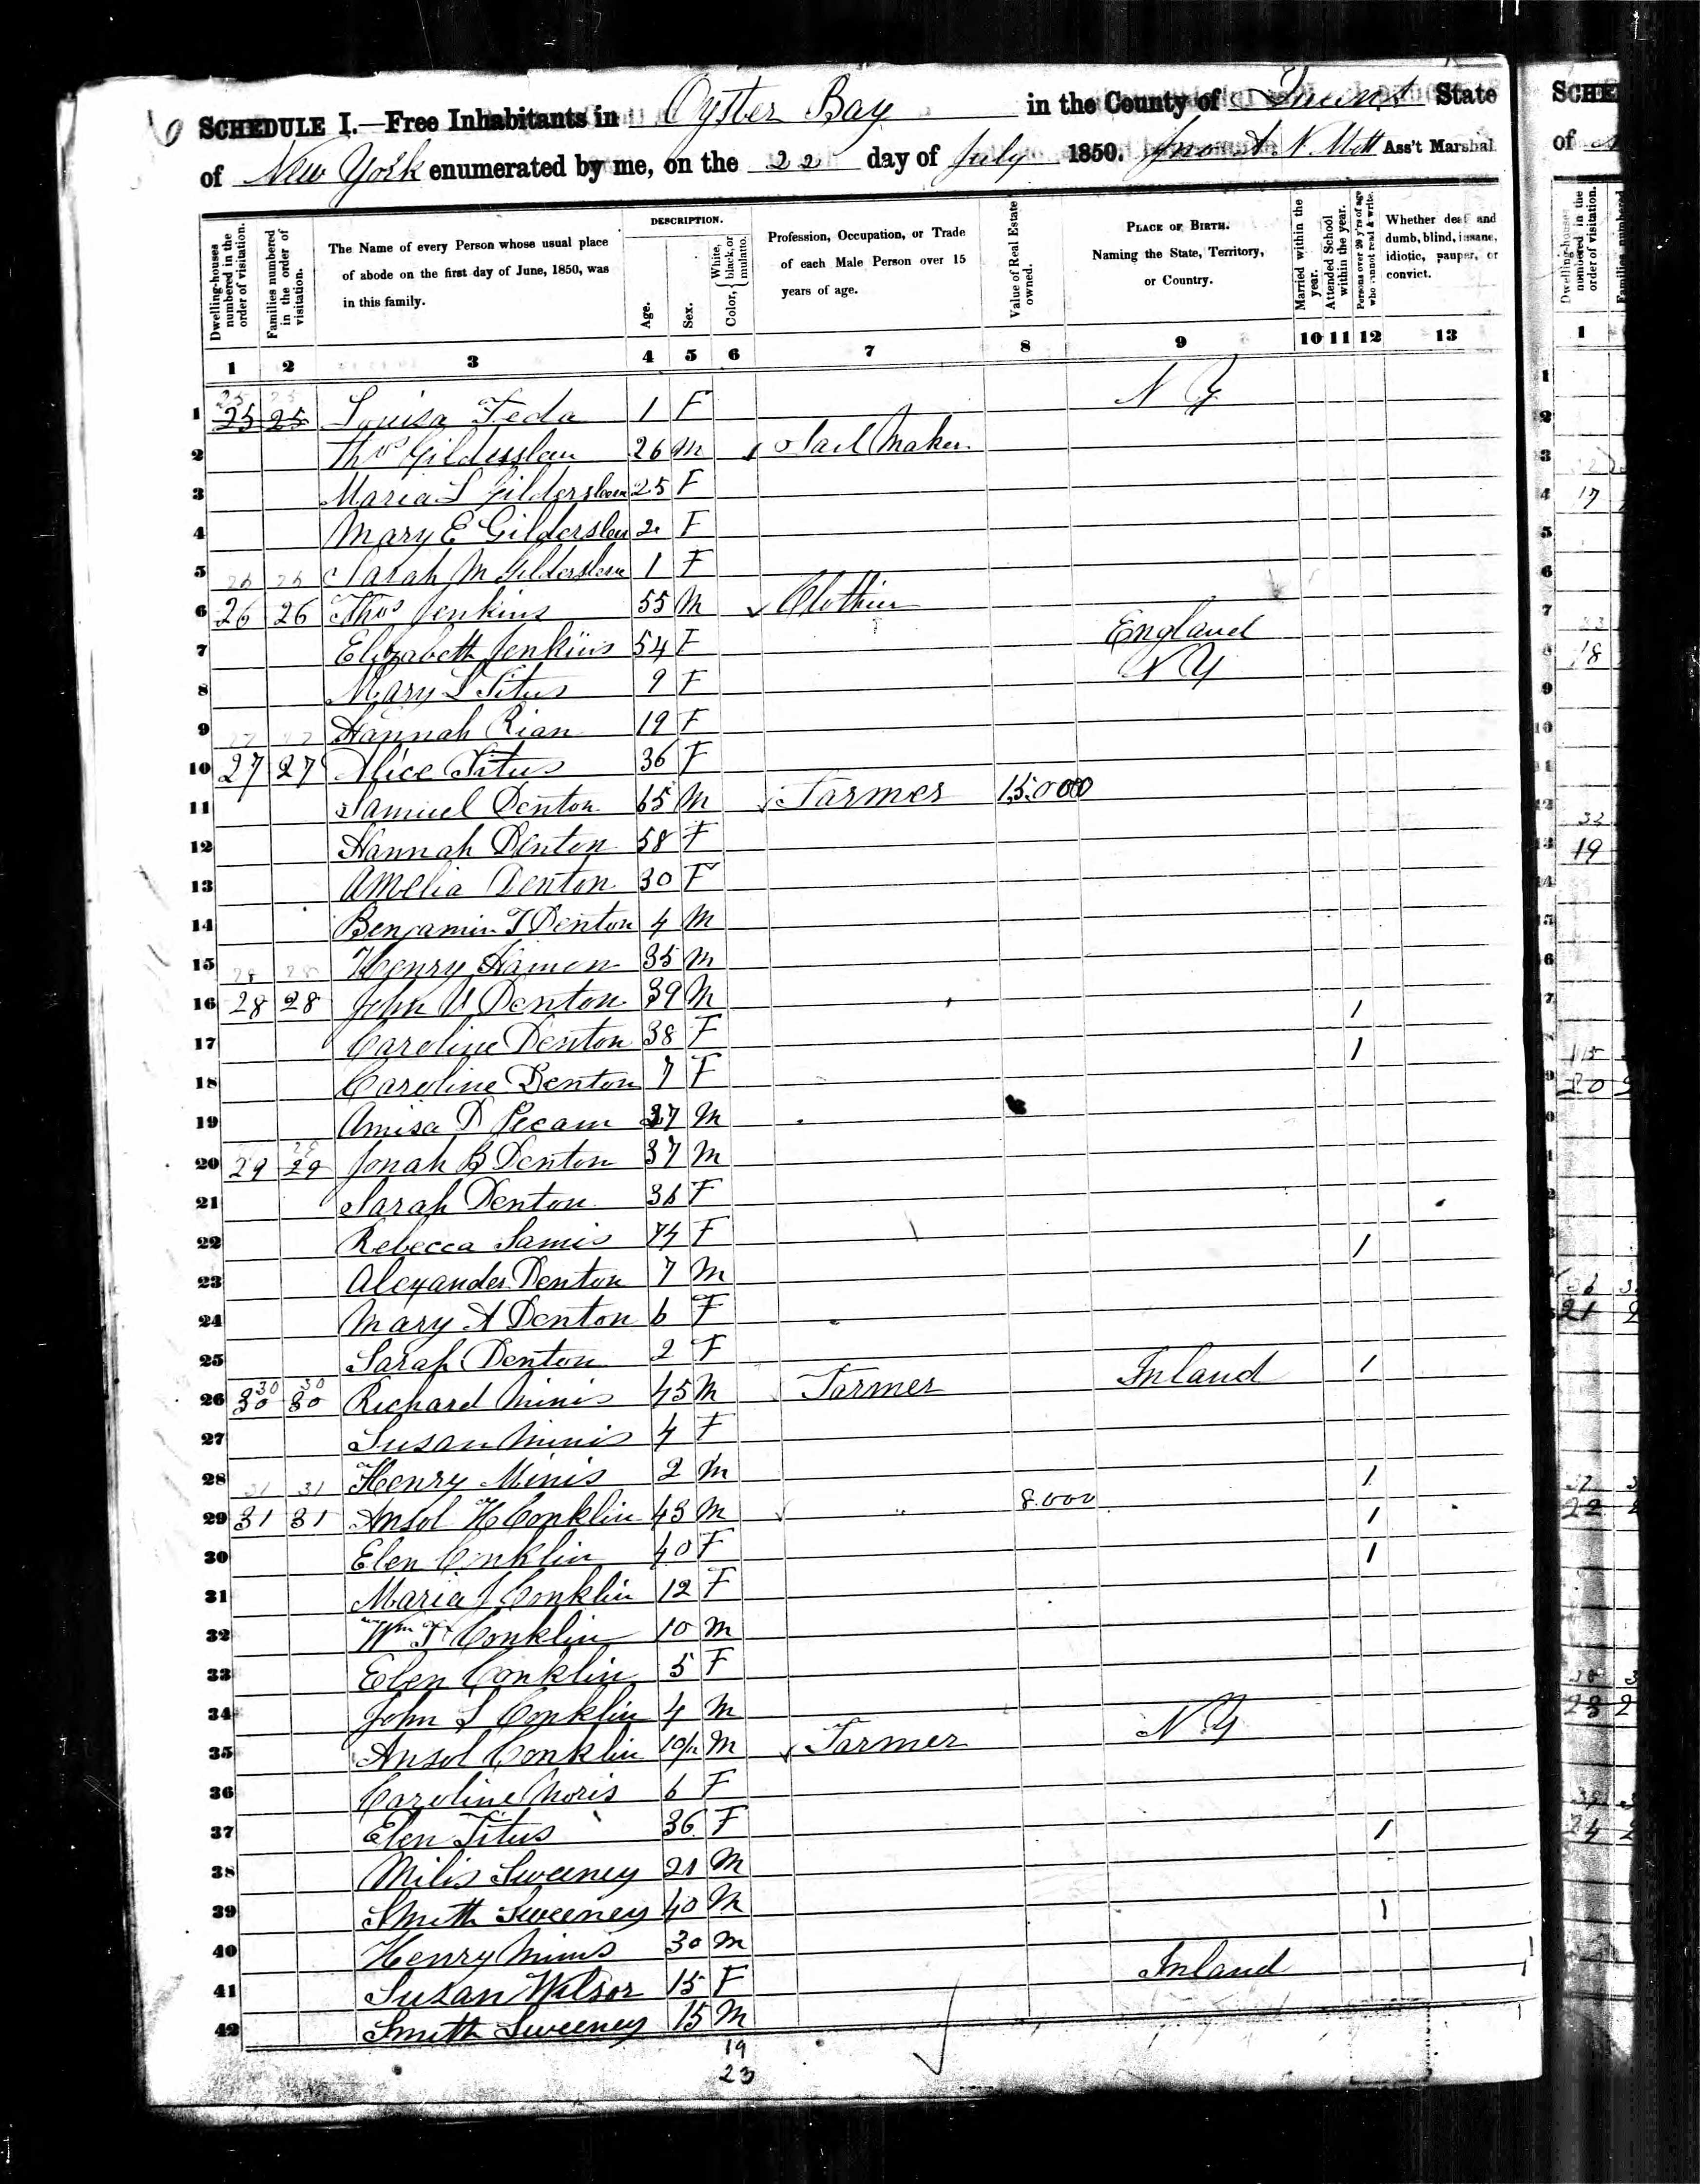 SCHEDULE I.—Free Inhabitants in Oyster Bay in the County of Queens State
of New York enumerated by me, on the 22 day of July 1850. Ass't Marshal
DESCRIPTION.
Dwelling-houses numbered in the order of visitation.
Families numbered in the order of visitation.
The Name of every Person whose usual place of abode on the first day of June, 1850, was in this family.
Age.
Sex.
Color, { White, black, or mulatto.
Profession, Occupation, or Trade of each Male Person over 15 years of age.
Value of Real Estate owned.
PLACE OF BIRTH. Naming the State, Territory, or Country.
Married within the year.
Attended School within the year.
Persons over 20 y'rs of age who cannot read & write.
Whether deaf and dumb, blind, insane, idiotic, pauper, or convict.
1 2 3 4 5 6 7 8 9 10 11 12 13
1 25 25 Louisa Feda 1 F N Y
2 Thos Gildersleve 26 M Sail Maker
3 Maria L Gildersleve 25 F
4 Mary E Gildersleve 2 F
5 Sarah M Gildersleve 1 F
6 26 26 Thos Jenkins 55 M Clothier
7 Elizabeth Jenkins 54 F England
8 Mary L Titus 9 F N Y
9 Hannah Rian 19 F
10 27 27 Alice Titus 36 F
11 Samuel Denton 65 M Farmer 15.000
12 Hannah Denton 58 F
13 Amelia Denton 30 F
14 Benjamin T Denton 4 M
15 Henry 35 M
16 28 28 John Denton 39 M 1
17 Caroline Denton 38 F 1
18 Caroline Denton 7 F
19 Amisa D M
20 29 29 Jonah B Denton 37 M
21 Sarah Denton 36 F
22 Rebecca Samis 74 F 1
23 Alexander Denton 7 M
24 Mary A Denton 6 F
25 Sarah Denton 2 F
26 30 30 Richard Minis 45 M Farmer Inland 1
27 Susan Minis 4 F
28 Henry Minis 2 M 1
29 31 31 Ansol H Conklin 43 M " 8.000 1
30 Elen Conklin 40 F 1
31 Maria J Conklin 12 F
32 Wm T Conklin 10 M
33 Elen Conklin 5 F
34 John S Conklin 4 M
35 Ansol Conklin M Farmer N Y
36 Caroline Noris 6 F
37 Elen Titus 36 F 1
38 Milis Sweeney 21 M
39 Smith Sweeney 40 M 1
40 Henry Minis 30 M
41 Susan Wilsor 15 F Inland
42 Smith Sweeney 15 M
19
23